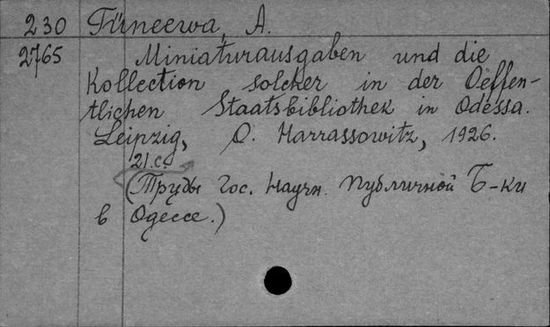 230 Türneewa, A.
2765 Miniaturausgaben und die
Kollection solcher in der Oeffen-
tlichen Staatsbibliothek in Odessa.
Leipzig, O. Harrassowitz, 1926.
21 с.
(Труды Гос. Научн. Публичной Б-ки
в Одессе.)